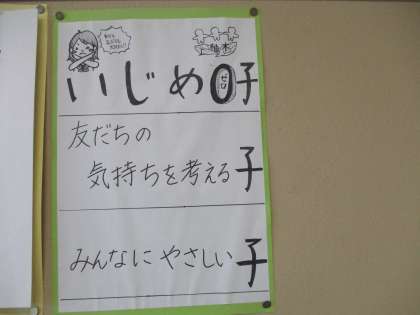 いじめ0子
ゼロ
友だちの
気持ちを考える子
みんなにやさしい子